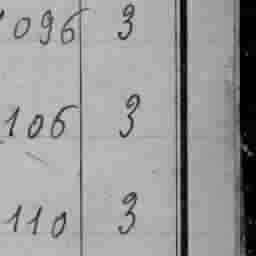 1096 3
106 3
110 3